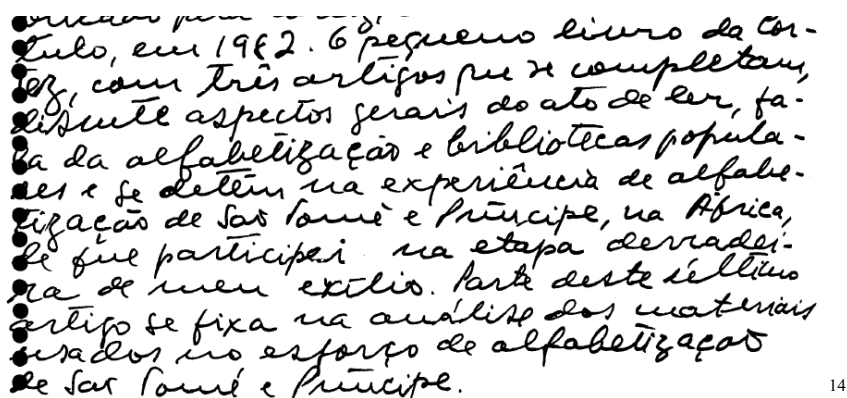 tulo, em 1982. O pequeno livro da Cor-
tez, com três artigos que se completam,
discute aspectos gerais do ato de ler, fa-
la da alfabetização e bibliotecas popula-
res e se detém na experiência de alfabe-
tização de São Tomé e Príncipe, na África,
de que participei na etapa derradei-
ra de meu exílio. Parte deste último
artigo se fixa na análise dos materiais
usados no esforço de alfabetização
de São Tomé e Príncipe.
14